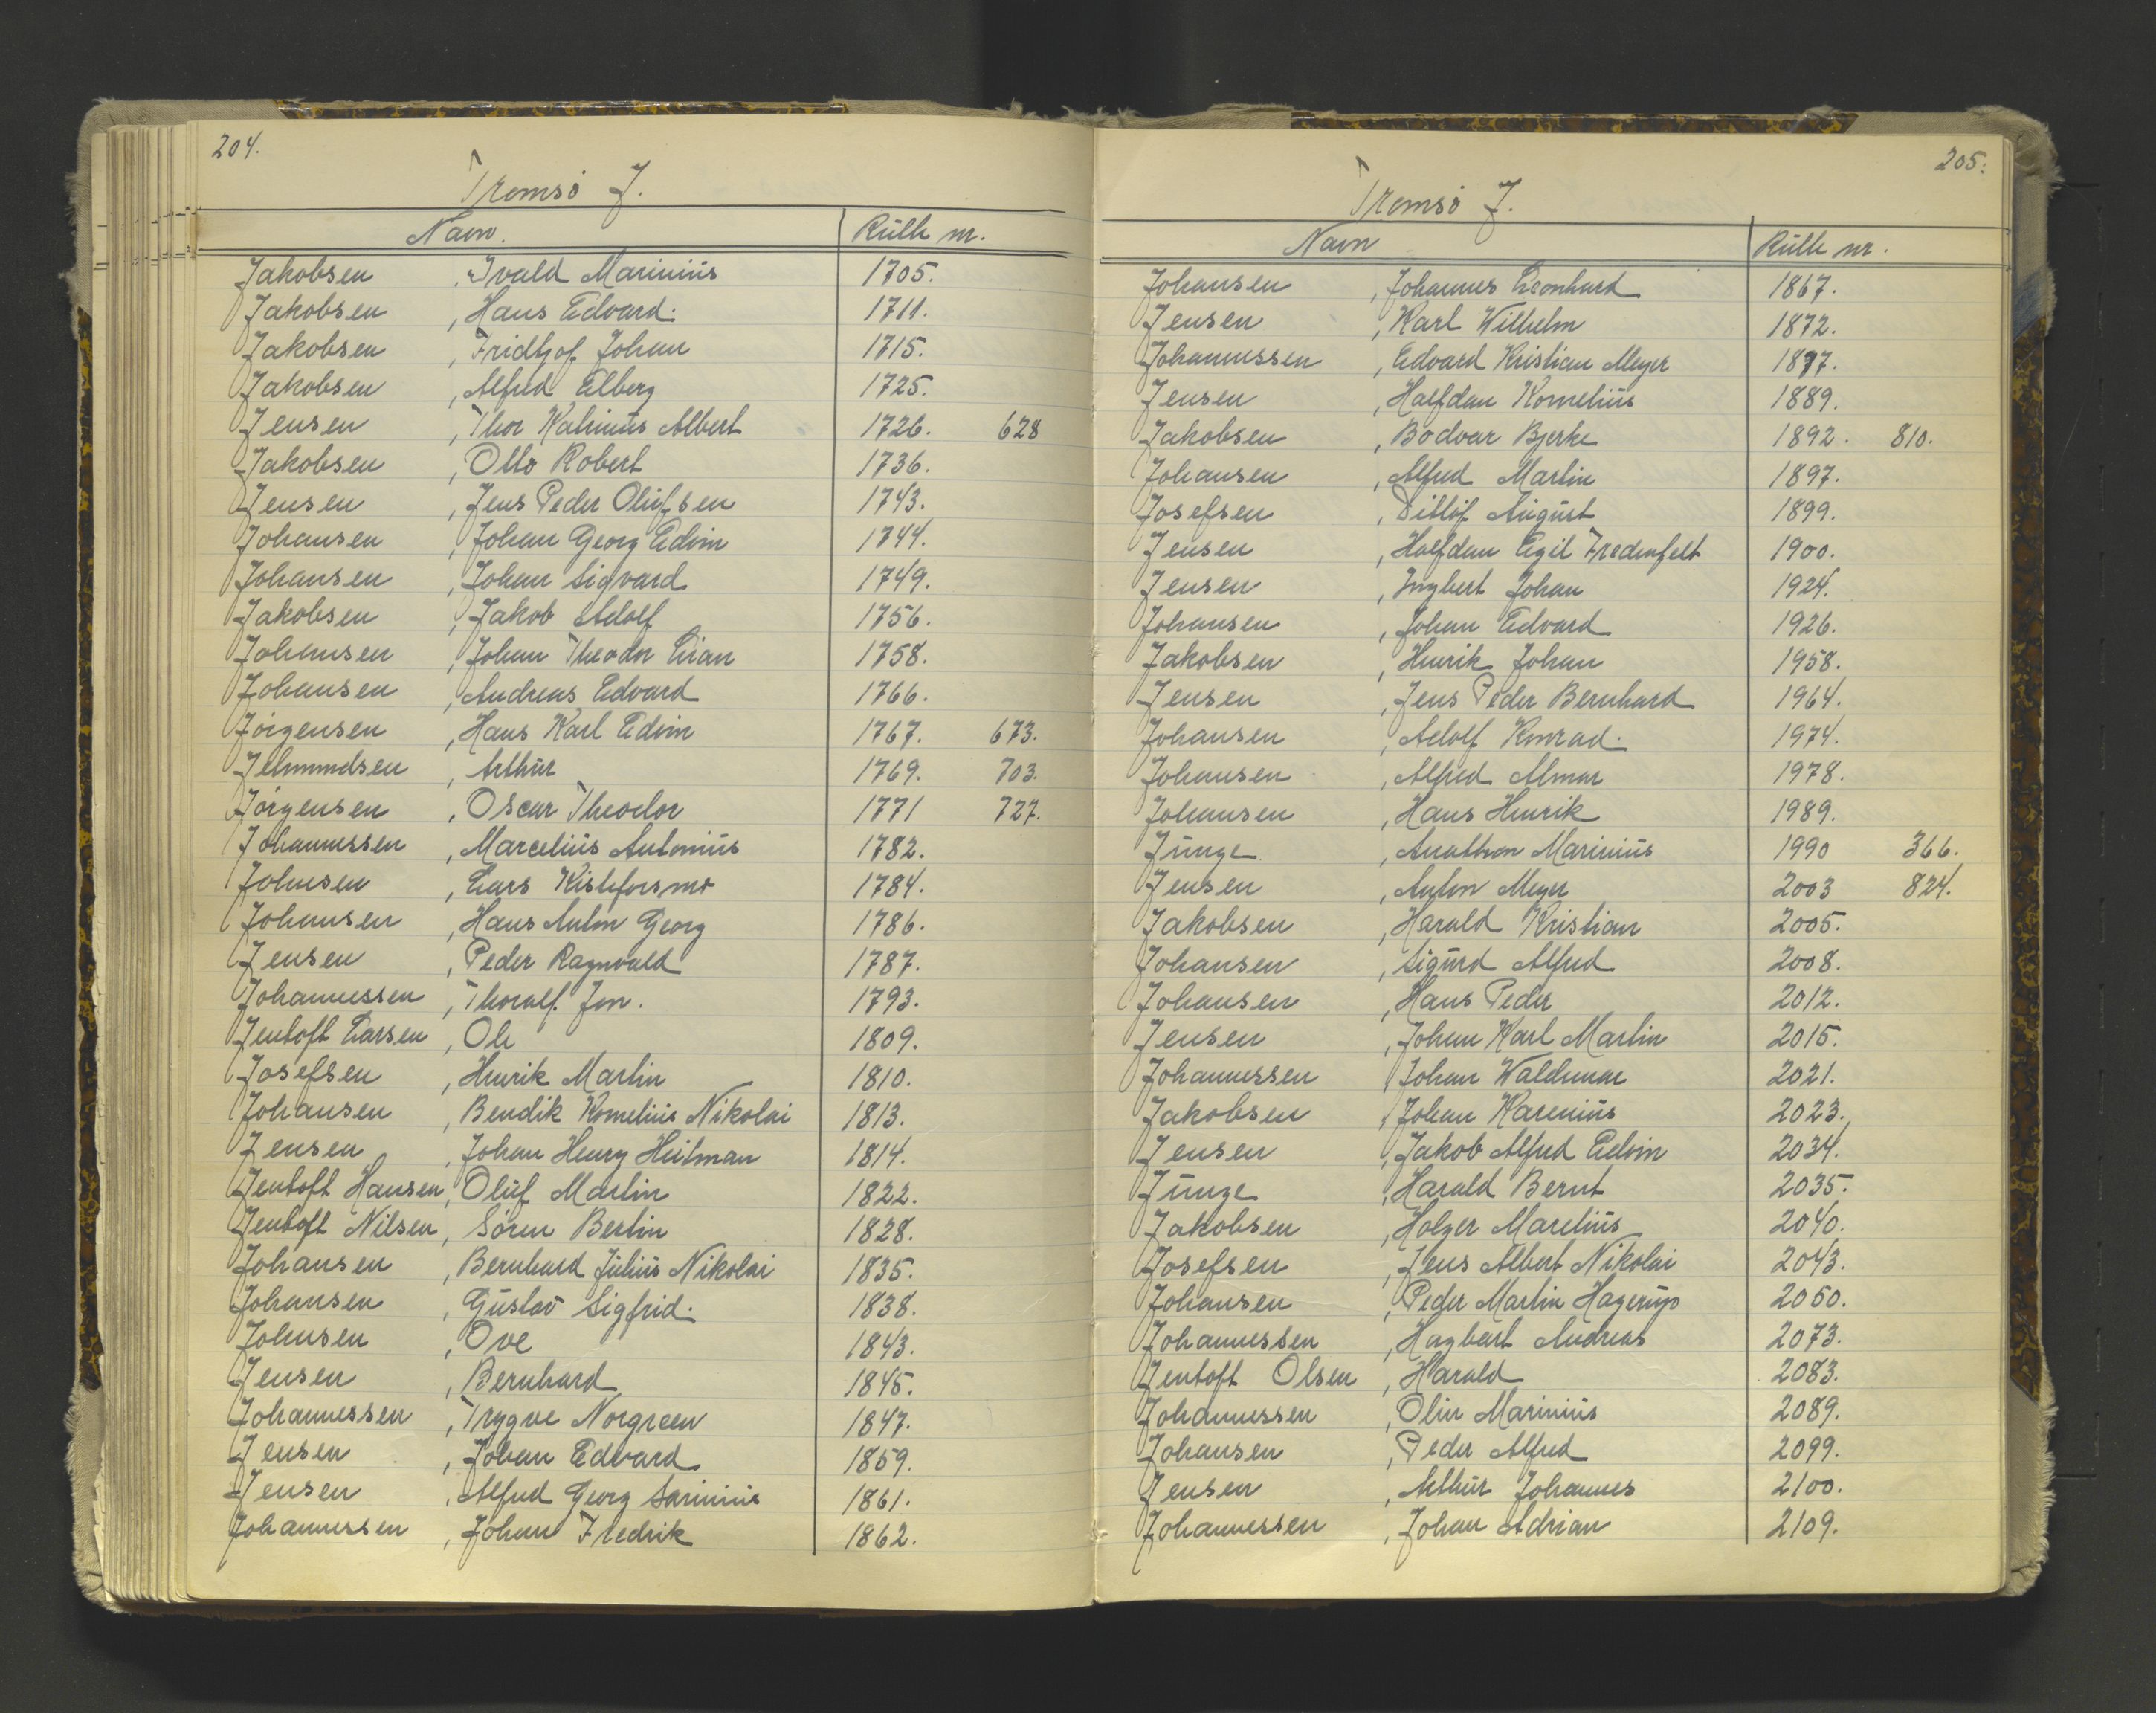 204.
Tromsö J.
Navn. Rulle nr.
Jakobsen , Ivald Marinius 1705.
Jakobsen , Hans Edvard. 1711.
Jakobsen , Fridtjof Johan 1715.
Jakobsen , Alfred Elberg 1725.
Jensen , Thor Katrinus Albert 1726. 628
Jakobsen , Otto Robert 1736.
Jensen , Jens Peder Olufsen 1743.
Johansen , Johan Georg Edvin 1744.
Johansen , Johan Sigvard 1749.
Jakobsen , Jakob Adolf 1756.
Johansen , Johan Theodor 1758.
Johansen , Andreas Edvard 1766.
Jörgensen , Hans Karl Edvin 1767. 673.
, Arthur 1769. 703.
Jörgensen , Oscar Theodor 1771 727.
Johannessen , Marcelius Antonius 1782.
Johnsen , Lars Kisteforsmo 1784.
Johansen , Hans Anton Georg 1786.
Jensen , Peder Ragnvald 1787.
Johannessen , Thoralf Jon. 1793.
Jentoft Larsen , Ole 1809.
Josefsen , Henrik Martin 1810.
Johansen , Bendik Kornelius Nikolai 1813.
Jensen , Johan Henry Heitman 1814.
Jentoft Hansen , Oluf Martin 1822.
Jentoft Nilsen , Sören Bertin 1828.
Johansen , Bernhard Julius Nikolai 1835.
Johansen , Gustav Sigfrid. 1838.
Johnsen , Ove 1843.
Jensen , Bernhard 1845.
Johannessen , Trygve Norgreen 1847.
Jensen , Johan Edvard 1859.
Jensen , Alfred Georg Sarinius 1861.
Johannessen , Johan Fredrik 1862.
205.
Tromsö J.
Navn Rulle nr.
Johansen , Johannes Leonhard 1867.
Jensen , Karl Wilhelm 1872.
Johannessen , Edvard Kristian Meyer 1877.
Jensen , Halfdan Kornelius 1889.
Jakobsen , Bodvar Bjerke 1892. 810.
Johansen , Alfred Martin 1897.
Josefsen , Ditlof August 1899.
Jensen , Halfdan Egil Fredenfelt 1900.
Jensen , Ingbert Johan 1924.
Johansen , Johan Edvard 1926.
Jakobsen , Henrik Johan 1958.
Jensen , Jens Peder Bernhard 1964.
Johansen , Adolf Konrad. 1974.
Johansen , Alfred Almar 1978.
Johansen , Hans Henrik 1989.
Junge , Anathon Marinius 1990 366.
Jensen , Anton Meyer 2003 824.
Jakobsen , Harald Kristian 2005.
Johansen , Sigurd Alfred 2008.
Johansen , Hans Peder 2012.
Jensen , Johan Karl Martin 2015.
Johannessen , Johan Waldemar 2021.
Jakobsen , Johan Karenius 2023.
Jensen , Jakob Alfred Edvin 2034.
Junge , Harald Bernt 2035.
Jakobsen , Holger Marelius 2040.
Josefsen , Jens Albert Nikolai 2043.
Johansen , Peder Martin Hagerup 2050.
Johannessen , Hagbart Andreas 2073.
Jentoft Olsen , Harald 2083.
Johannessen , Olin Marinius 2089.
Johansen , Peder Alfred 2099.
Jensen , Arthur Johannes 2100.
Johannessen , Johan Adrian 2109.